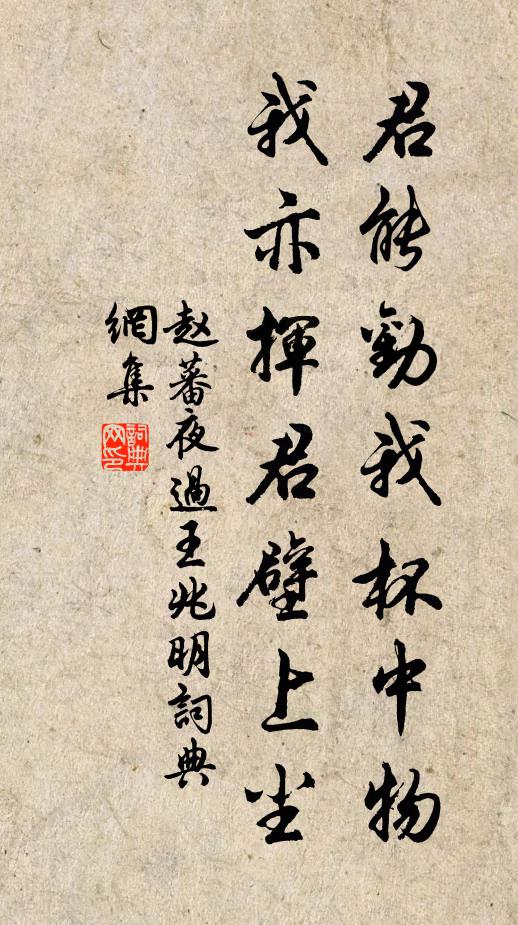 君能勸我杯中物
我亦揮君壁上尘
赵蕃夜過王兆明詞典
網集
詞典网印